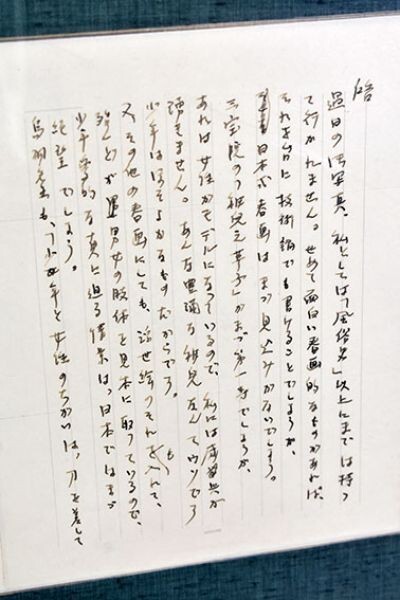 啓
過日の御写真、私としては「風俗史」以上にまでは持つ
て行かれません。せめて面白い春画的なものがあれば、
それを台に技術論でも書けることでしょうが、
日本の春画はまづ見込みがないでしょう。
三宝院の「稚児之草子」がまづ第一等でしょうが、
あれは女性がモデルになっているので、私には
きません。あんな豊満な稚児なんてウソでう
少年はほそよかなものだからです。
又、その他の春画にしても、浮世絵のそれも入れて、
殆んどが男女の肢体を見本に取っているので、
少年的な真に迫る情景は、日本ではまづ
絶望でしょう。
鳥羽先生も、「少年と女性のちがいは、刀を差して